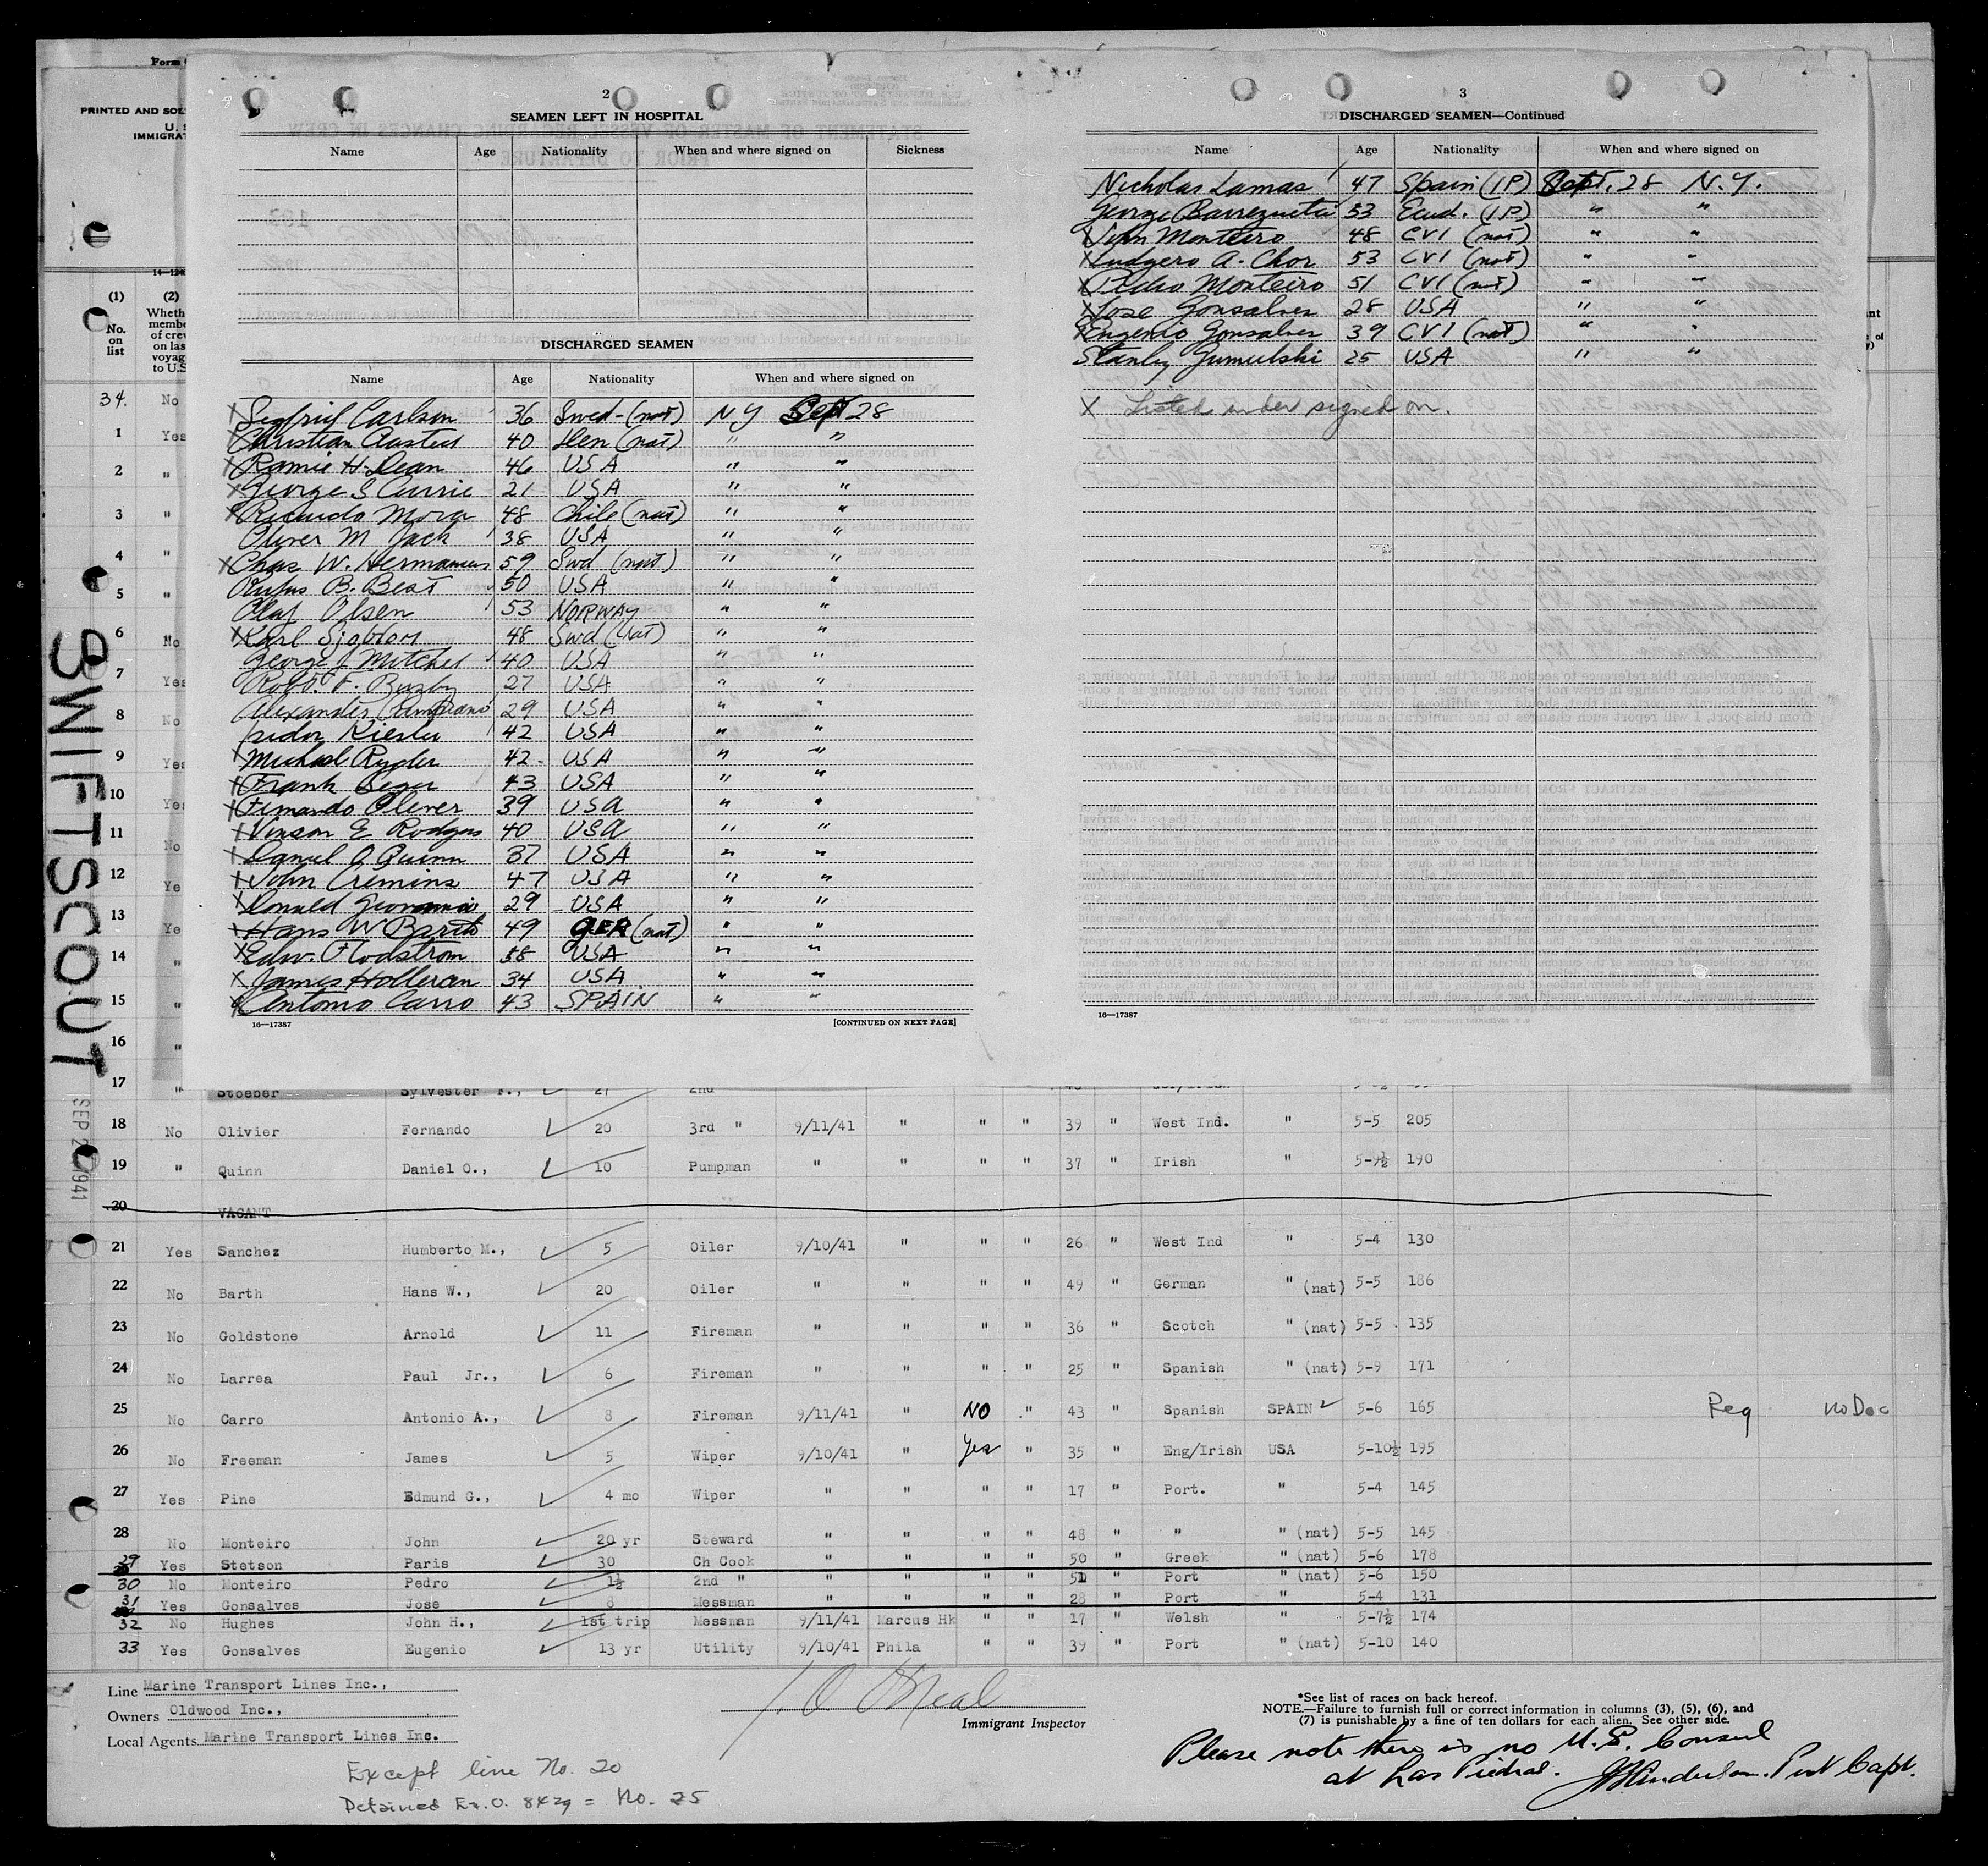 Form
PRINTED AND SOL
U. S
IMMIGRAT
14—1240
(1)
No.
on
list
(2)
Wheth
membe
of crew
on las
voyag
to U.S
SWIFTSCOUT
SEP 1941
2
SEAMEN LEFT IN HOSPITAL
Name Age Nationality When and where signed on Sickness
DISCHARGED SEAMEN
Name Age Nationality When and where signed on
X Carlson 36 Swed-(nat) NY Sept 28
X Christian 40 Den (nat) " "
X Ramie H. Dean 46 USA " "
X George S Currie 21 USA " "
X Ricardo Mora 48 Chile (nat) " "
Oliver M Jack 38 USA " "
X Chas W. Hermanus 59 Swd (nat) " "
Rufus B. Best 50 USA " "
Olaf Olsen 53 NORWAY " "
X Karl Sjoblom 48 Swd (nat) " "
George J Mitchel 40 USA " "
Robt. F. Buzby 27 USA " "
Alexander 29 USA " "
Isidor Kiesler 42 USA " "
X Michael Ryder 42 USA " "
X Frank Beger 43 USA " "
X Fernando Oliver 39 USA " "
X Vinson E Rodgers 40 USA " "
X Daniel O Quinn 37 USA " "
X John Cremins 47 USA " "
X Donald 29 USA " "
X Hans W Barth 49 GER (nat) " "
X Edw. Flodstrom 58 USA " "
X James Holleran 34 USA " "
X Antonio Carro 43 SPAIN " "
16—17387 [CONTINUED ON NEXT PAGE]
3
DISCHARGED SEAMEN—Continued
Name Age Nationality When and where signed on
Nicholas Lamas 47 Spain (1P) Sept. 28 N.Y.
George Barrezueta 53 Ecud. (1P) " "
X John Monteiro 48 CVI (nat) " "
X Ludgero A. Chor 53 CVI (nat) " "
X Pedro Monteiro 51 CVI (nat) " "
X Jose Gonsalves 28 USA " "
X Eugenio Gonsalves 39 CVI (nat) " "
Stanley Gumulski 25 USA " "
X Listed under signed on.
16—17387
34. No
1 Yes
2 "
3 "
4 "
5 "
6 No
7 Yes
8 No
9 Yes
10 Yes
11 No
12 Ye
13 Ye
14 "
15 "
16 "
17 " Stoeber Sylvester F., 21 2nd
18 No Olivier Fernando 20 3rd " 9/11/41 " " " 39 " West Ind. " 5-5 205
19 " Quinn Daniel O., 10 Pumpman " " " " 37 " Irish " 5-9½ 190
20 VACANT
21 Yes Sanchez Humberto M., 5 Oiler 9/10/41 " " " 26 " West Ind " 5-4 130
22 No Barth Hans W., 20 Oiler " " " " 49 " German " (nat) 5-5 186
23 No Goldstone Arnold 11 Fireman " " " " 36 " Scotch " (nat) 5-5 135
24 No Larrea Paul Jr., 6 Fireman " " " " 25 " Spanish " (nat) 5-9 171
25 No Carro Antonio A., 8 Fireman 9/11/41 " NO " 43 " Spanish SPAIN 5-6 165 Reg no Doc
26 No Freeman James 5 Wiper 9/10/41 " Yes " 35 " Eng/Irish USA 5-10½ 195
27 Yes Pine Edmund G., 4 mo Wiper " " " " 17 " Port. " 5-4 145
28 No Monteiro John 20 yr Steward " " " " 48 " " " (nat) 5-5 145
29 Yes Stetson Paris 30 Ch Cook " " " " 50 " Greek " (nat) 5-6 178
30 No Monteiro Pedro 1½ 2nd " " " " " 51 " Port " (nat) 5-6 150
31 Yes Gonsalves Jose 8 Messman " " " " 28 " Port " 5-4 131
32 No Hughes John H., 1st trip Messman 9/11/41 Marcus Hk " " 17 " Welsh " 5-7½ 174
33 Yes Gonsalves Eugenio 13 yr Utility 9/10/41 Phila " " 39 " Port " (nat) 5-10 140
Line Marine Transport Lines Inc.,
Owners Oldwood Inc.,
Local Agents Marine Transport Lines Inc.
Immigrant Inspector
*See list of races on back hereof.
NOTE.—Failure to furnish full or correct information in columns (3), (5), (6), and
(7) is punishable by a fine of ten dollars for each alien. See other side.
Please note there is no U.S. Consul
at Las Piedras. Port Capt.
Except line No. 20
Detained Ex. O. 8429 = No. 25